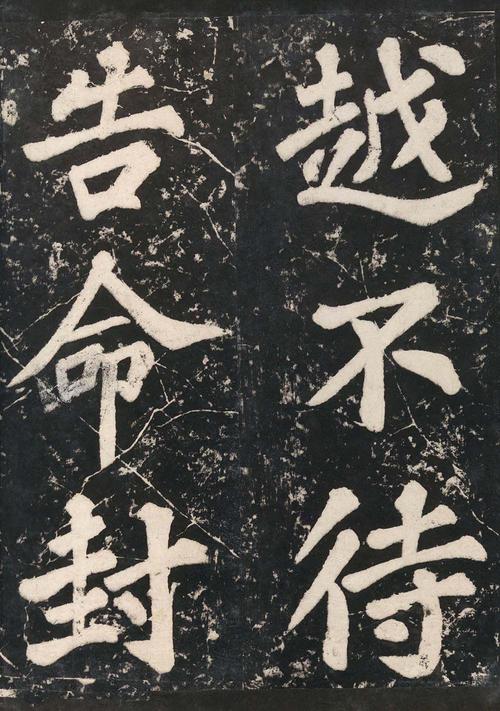 越不待
告命封